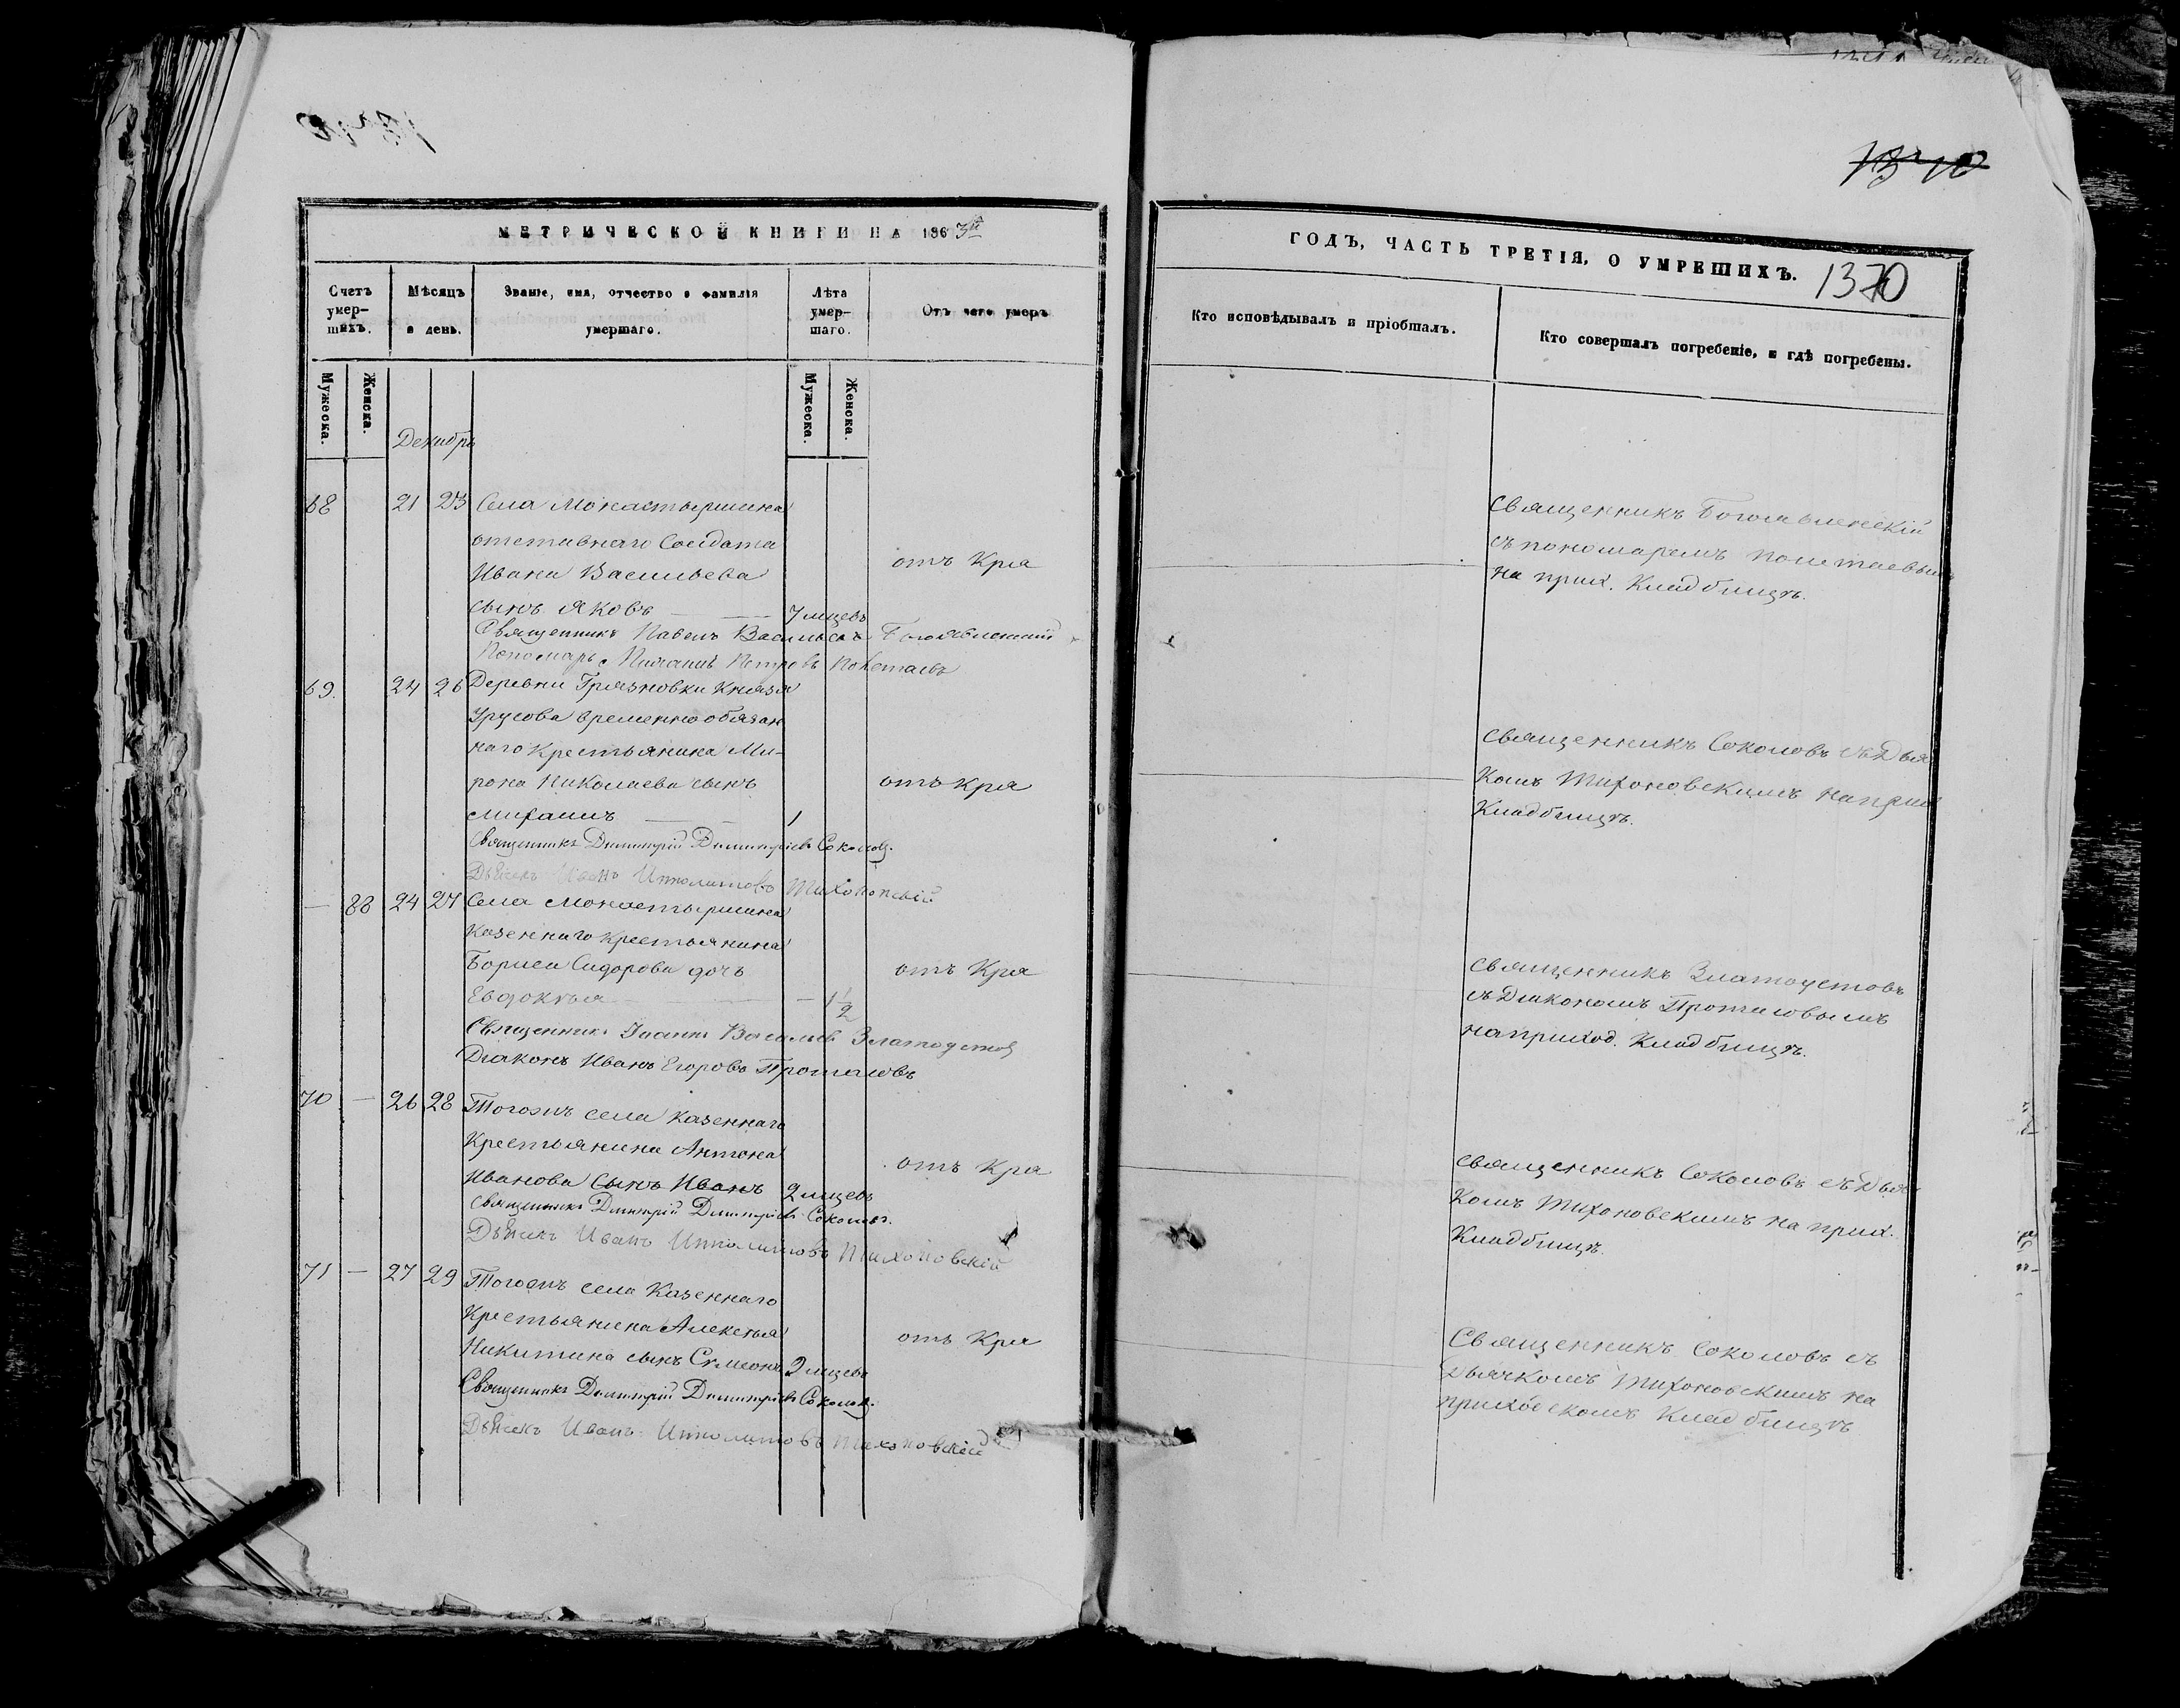 1370
МЕТРИЧЕСКОЙ КНИГИ НА 1863й
ГОДЪ, ЧАСТЬ ТРЕТІЯ, О УМРЕШИХЪ. 1370
Счетъ умер-шихъ.
Мѣсяцъ и день.
Званіе, имя, отчество и фамилія умершаго.
Лѣта умер-шаго.
Отъ чего умеръ
Кто исповѣдывалъ и пріобщалъ.
Кто совершалъ погребеніе, и гдѣ погребены.
Мужеска.
Женска.
Мужеска.
Женска.
Декабрь
68 21 23 Села Монастырщина
отставнаго Солдата
Ивана Васильева
сынъ Яковъ 7 мцевъ
отъ Кра
Священникъ Богоявленскій
съ пономаремъ Полетаевым
на прих. Кладбищѣ.
Священникъ Павелъ Васильевъ Богоявленскій
Пономарь Петровъ Полетаевъ
69. 24 26 Деревни Грязновки Князя
Урусова временно обязан
наго Крестьянина Ми-
рона Николаева сынъ
Михаилъ 1
отъ Кра
Священникъ Соколовъ съ Дья
комъ Тихоновскимъ на прих
Кладбищѣ.
Священникъ Димитрій Димитріевъ Соколовъ.
Дьячекъ Иванъ Ипполитовъ Тихоновскій
— 88 24 27 Села Монастырщина
Казеннаго Крестьянина
Бориса Сидорова дочь
Евдокія — 1 1/2
отъ Кра
Священникъ Златоустовъ
съ Діакономъ Протасовымъ
на приход. Кладбищѣ.
Священникъ Іоаннъ Васильевъ Златоустовъ
Діаконъ Иванъ Егоровъ Протасовъ
70 — 26 28 Тогожъ села Казеннаго
Крестьянина Антона
Иванова Сынъ Иванъ 2 мцевъ
отъ Кра
Священникъ Соколовъ съ Дья
комъ Тихоновскимъ на прих.
Кладбищѣ.
Священникъ Димитрій Димитріевъ Соколовъ.
Дьячекъ Иванъ Ипполитовъ Тихоновскій
71 — 27 29 Тогожъ села Казеннаго
Крестьянина Алексѣя
Никитина сынъ Сѵмеонъ 2 мцевъ
отъ Кра
Священникъ Соколовъ съ
Дьячкомъ Тихоновскимъ на
приходскомъ Кладбищѣ
Священникъ Димитрій Димитріевъ Соколовъ.
Дьячекъ Иванъ Ипполитовъ Тихоновскій